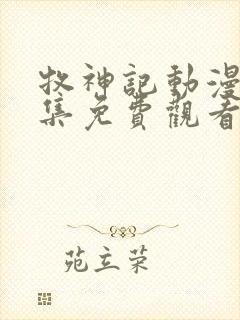 牧神記動漫
集免費觀看
苑立荣